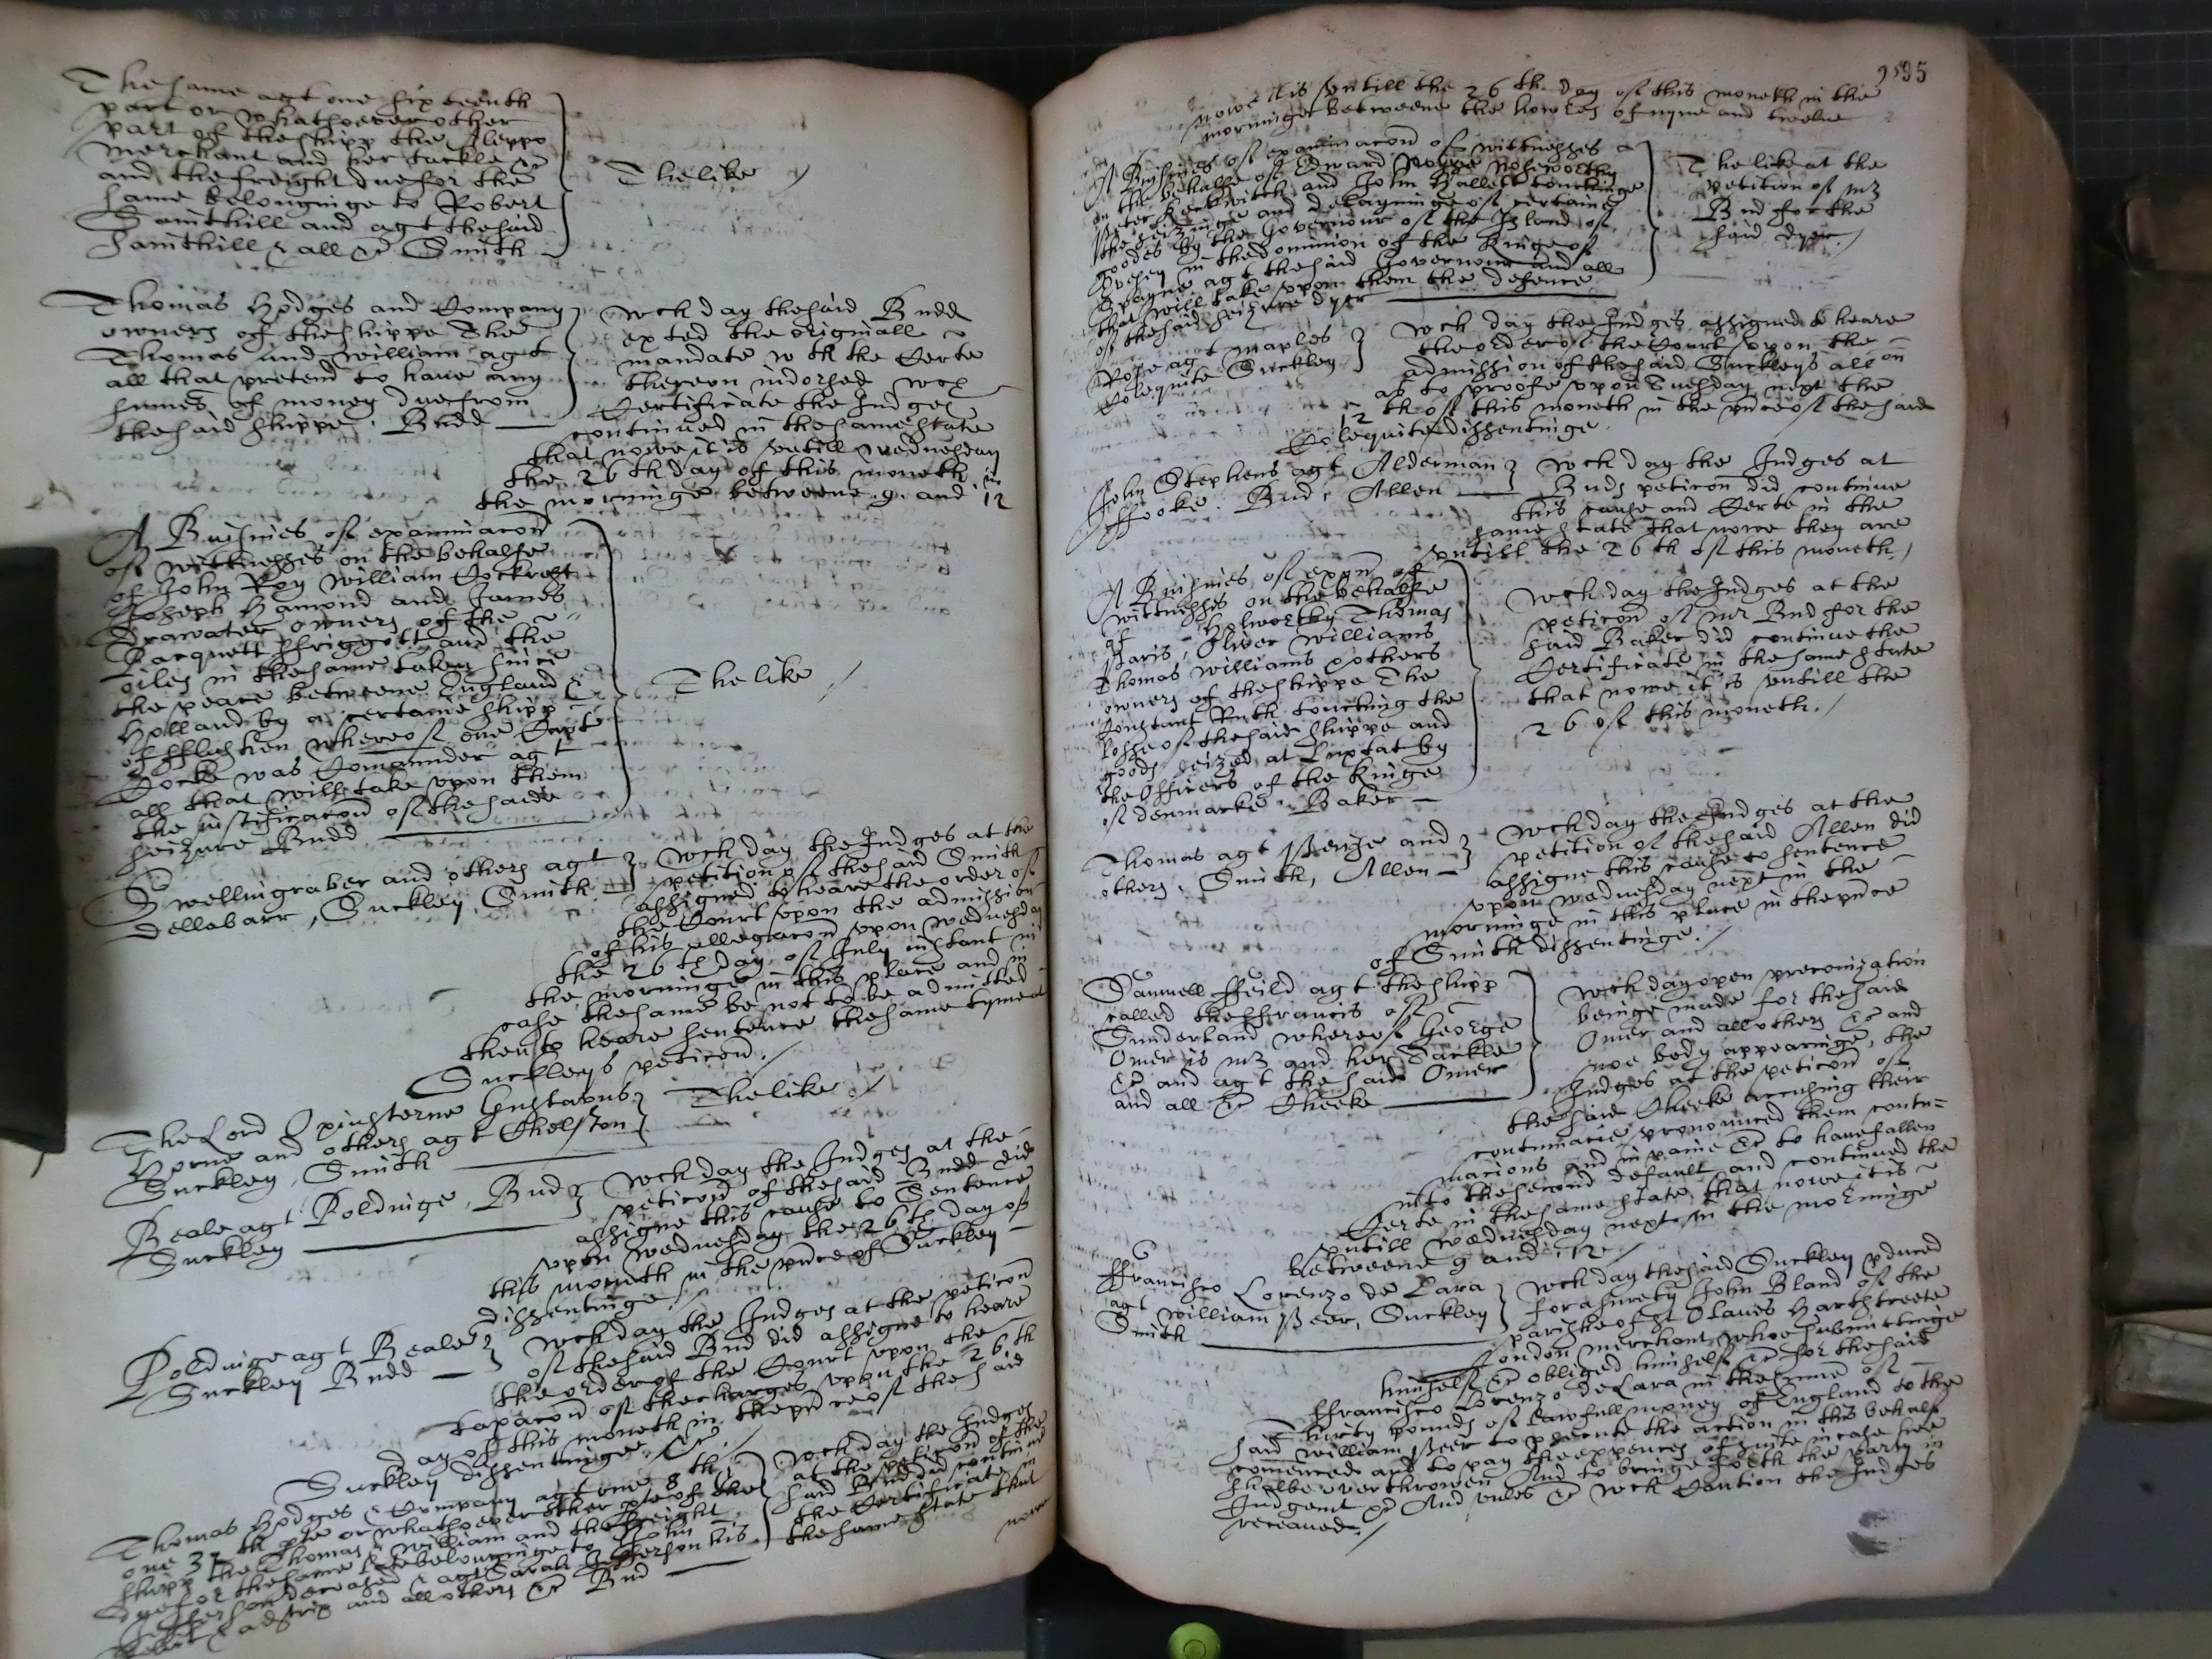 The same agt one sixteenth
part or whatsoever other
part of the shipp the Aleppo
merchant and her tackle &c
and the freight due for the
same belonginge to Robert
Sainthill and agt the said
Sainthill & all &c Smith
The like
Thomas Hodges and Company
owners of the shippe The
Thomas and William agt
all that pretend to have any
summes of money due from
the said shippe. Budd
wch day the said Budd
exted the originall
mandate wth the Certe
thereon indorsed wch
Certificate the Judges
continued in the same state
that nowe it is untill wednesday
the 26th day of this moneth in
the morninge betweene 9 and 12
A Busines of examinacon
of wittnesses on the behalfe
of John Roy William Cockroft
Joseph Hamond and James
Drawater owners of the
Pacquett ffriggott and the
oiles in the same taken since
the peace betweene England &
Holland by a certaine shipp
of fflushen whereof one Capt
Cocke was Comannder agt
all that will take upon them
the justificacon of the saide
seizure Budd
The like
Swellingraber and others agt
dellabarr, Suckley Smith
wch day the Judges at the
petition of the said Smith
assigned to heare the order of
the Court upon the admission
of his allegacon upon wednesday
the 26th day of July instant in
the morninge in this place and in
case the same be not to be admitted
then to heare sentence the same tyme at
Suckleys peticon.
The Lord Spinsterne Gustavus
Horne and others agt Chelston
Suckley, Smith
The like
Beale agt Poldinge, Bud
Suckley
wch day the Judges at the
peticon of the said Budd did
assigne this cause to Sentence
upon wednesday the 26th day of
this moneth in the pnce of Suckley
dissentinge
Poldinge agt Beale
Suckley Budd
wch day the Judges at the peticon
of the said Bud did assigne to heare
the order of the Court upon the
taxacon of the charges upon the 26th
day of this moneth in the pnce of the said
Suckley dissentinge &c
Thomas Hodges & Company agt one 8th
one 32th pte or whatsoever other pte of the
shipp the Thomas & William and the freight
due for the same belonginge to John
Jefferson deceased & agt Sarah Jefferson his
relict & adstrix and all others &c Bud
wch day the Judges
at the peticon of the
said Bud did continue
the Certificate in
the same state that
nowe
nowe it is untill the 26th day of this moneth in the
morninge betweene the howres of nyne and twelve
A Busines of examinacon of wittnesses a
on the behalfe of Edward Noseworthy
Peter Beckwith and John Hallett touchinge
the seizinge and detayninge of certaine
goodes by the Governour of the Island of
in the dominion of the Kinge of
Spayne agt the said Governour and all
that will take upon them the defence
of the said seizure dyer
The like at the
petition of mr
Bud for the
said dyer.
Rose agt maples
Colequite Suckley
wch day the Judges assigned to heare
the order of the Court upon the
admission of the said Suckleys allon
as to proofe upon Tuesday next the
12th of this moneth in the pnce of the said
Colequite dissentinge.
John Stephens agt Alderman
ffooke. Bud, Allen
wch day the Judges at
Buds peticon did continue
this cause and Certe in the
same state that nowe they are
untill the 26th of this moneth.
A Busines of exon of
wittnesses on the behalfe
of Holworthy Thomas
Paris, Oliver Williams
Thomas Williams & others
owners of the shippe The
Constant Ruth touching the
losse of the said shippe and
goods seized at Luxtat by
the Officers of the Kinge
of denmarke. Baker
wch day the Judges at the
peticon of mr Bud for the
said Baker did continue the
Certificate in the same state
that nowe it is untill the
26 of this moneth.
Thomas agt Pense and
others, Smith, Allen
wch day the Judges at the
petition of the said Allen did
assigne this cause to sentence
upon wednesday next in the
morninge in this place in the pnce
of Smith dissentinge.
Samuell ffeild agt the shipp
called the ffrancis of
Sunderland whereof George
Omer is mr and her Tackle
&c and agt the said Omer
and all &c Cheeke
wch day upon preconization
beinge made for the said
Omer and all others &c and
noe body appearinge, the
Judges at the peticon of
the said Cheeke accusing their
contumacie pronounced them contu=
macious and in paine &c to have fallen
into the second default and continued the
Certe in the same state that nowe it is
untill wednesday next in the morninge
betweene 9 and 12.
ffrancisco Lorenzo de Lara
agt William Peer, Suckley
Smith
wch day the said Suckley pduced
for a surety John Bland of the
parishe of St Olaves Hartstreete
London merchant, whoe submittinge
himself &c obliged himself &c for the said
ffrancisco Lorenzo de Lara in the summe of
Thirty pounds of lawfull money of England to the
said William Peer to psecute the action in this behalf
comenced and to pay the expences of suite in case hee
shalbe overthrowen And to bringe forth the party in
Judgemt &c And unles &c wch Caution the Judges
received.